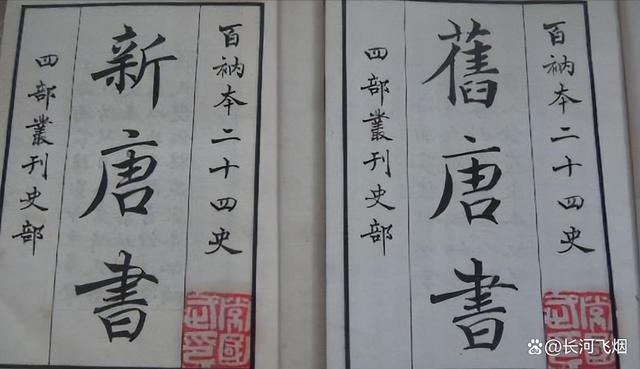 百衲本二十四史
新唐書
四部叢刊史部
百衲本二十四史
舊唐書
四部叢刊史部
@长河飞烟